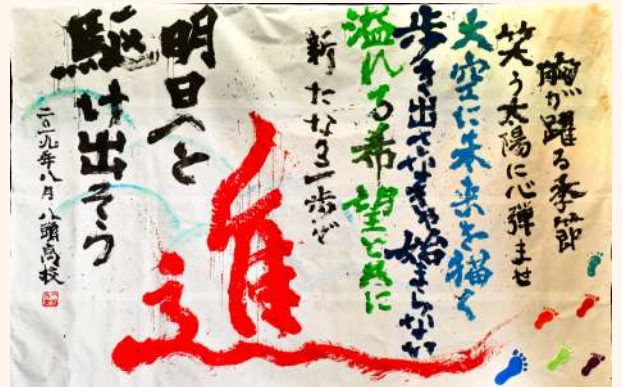 胸が躍る季節
笑う太陽に心弾ませ
大空に未来を描く
歩き出さなきゃ始まらない
溢れる希望と共に
新たなる一歩を
進
明日へと
駆け出そう
二〇一九年八月 八頭高校